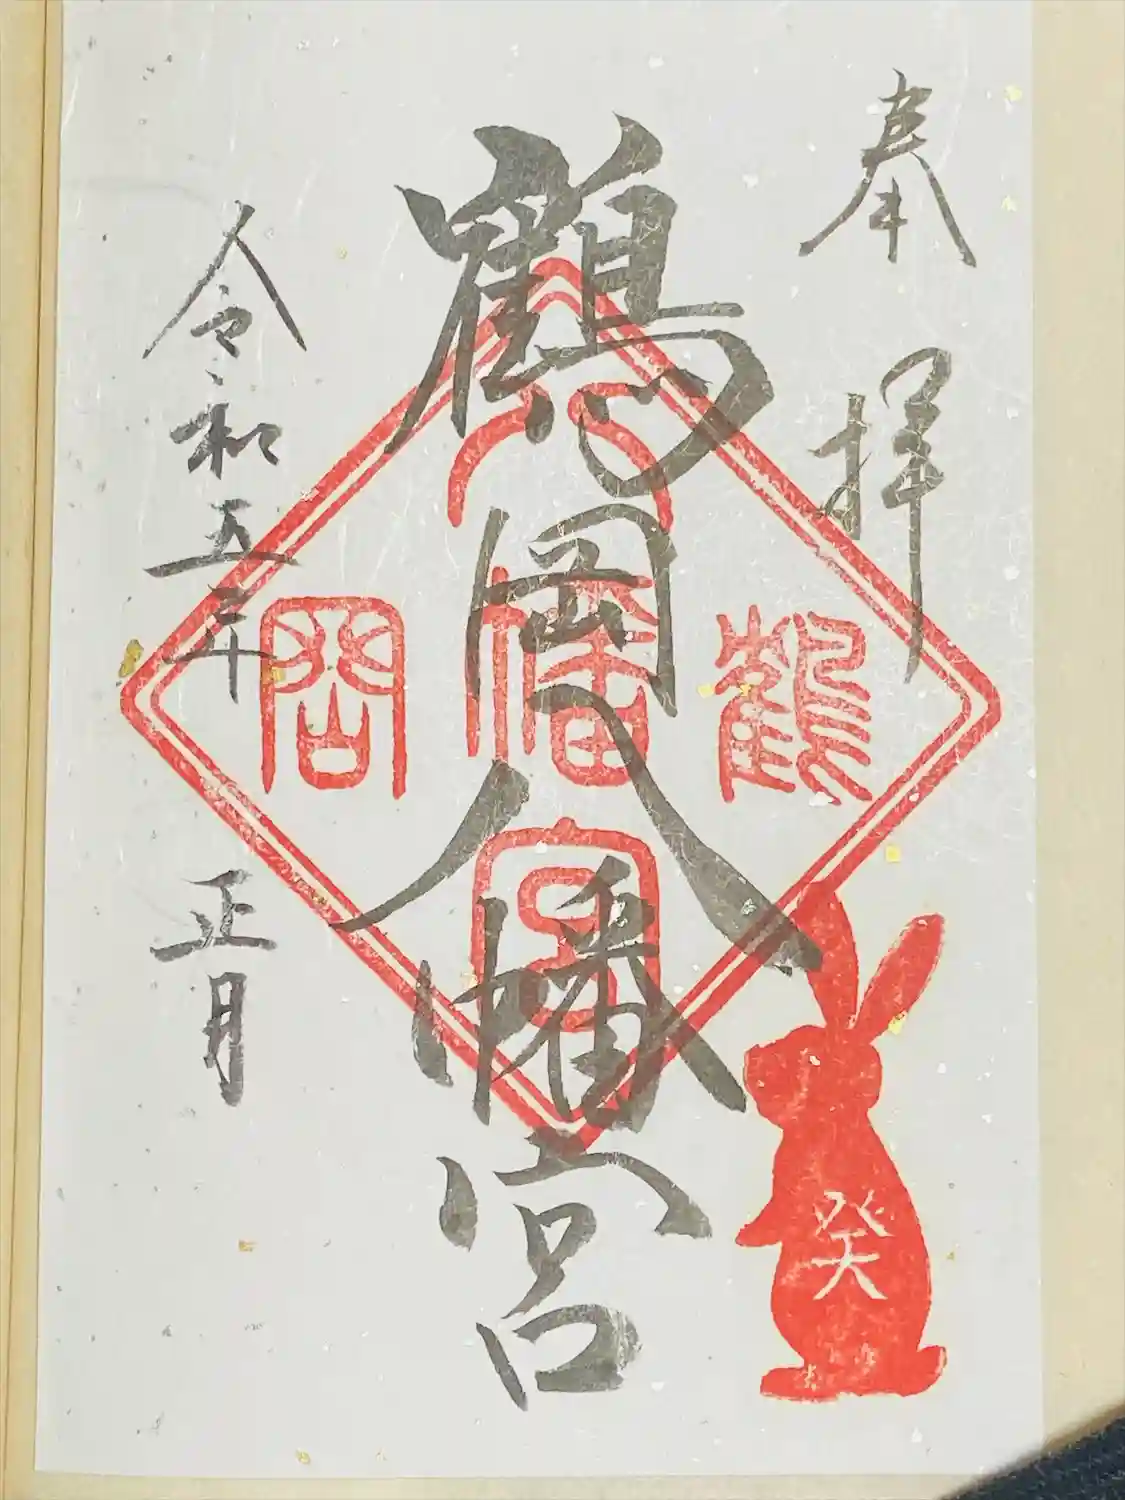 奉拝
鶴岡八幡宮
令和五年正月
鶴
八幡
岡
宮
癸